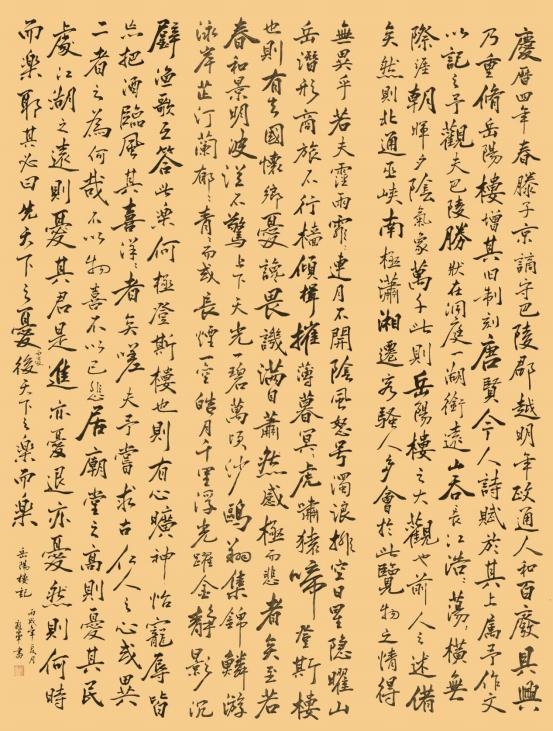 慶曆四年春滕子京謫守巴陵郡越明年政通人和百廢具興
乃重脩岳陽樓增其旧制刻唐賢今人詩賦於其上属予作文
以記之予觀夫巴陵勝狀在洞庭一湖銜遠山吞長江浩〻蕩〻橫無
際涯朝暉夕陰氣象萬千此則岳陽樓之大觀也前人之述備
矣然則北通巫峽南極瀟湘遷客騷人多會於此覽物之情得
無異乎若夫霪雨霏〻連月不開陰風怒号濁浪排空日星隐曜山
岳潛形商旅不行檣傾楫摧薄暮冥〻虎嘯猿啼登斯樓
也則有去國懷鄉憂讒畏譏滿目蕭然感極而悲者矣至若
春和景明波瀾不驚上下天光一碧萬頃沙鷗翔集錦鱗游
泳岸芷汀蘭郁〻青〻而或長煙一空皓月千里浮光躍金静影沉
璧漁歌互答此樂何極登斯樓也則有心曠神怡寵辱皆
忘把酒臨風其喜洋〻者矣嗟夫予嘗求古仁人之心或異
二者之為何哉不以物喜不以己悲居廟堂之高則憂其民
處江湖之遠則憂其君是進亦憂退亦憂然則何時
而樂耶其必曰先天下之憂而憂後天下之樂而樂
岳陽樓記
丙戌年夏月
書